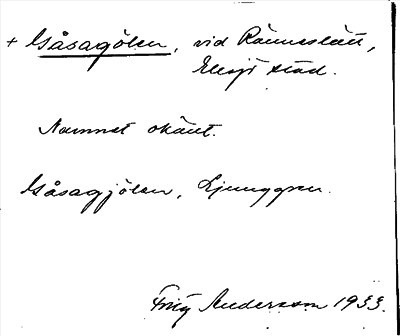 + Gåsagölen, vid Ränneslätt,
Eksjö stad.
Namnet okänt.
Gåsagjölen, Ljunggren.
Fritz Andersson 1933.